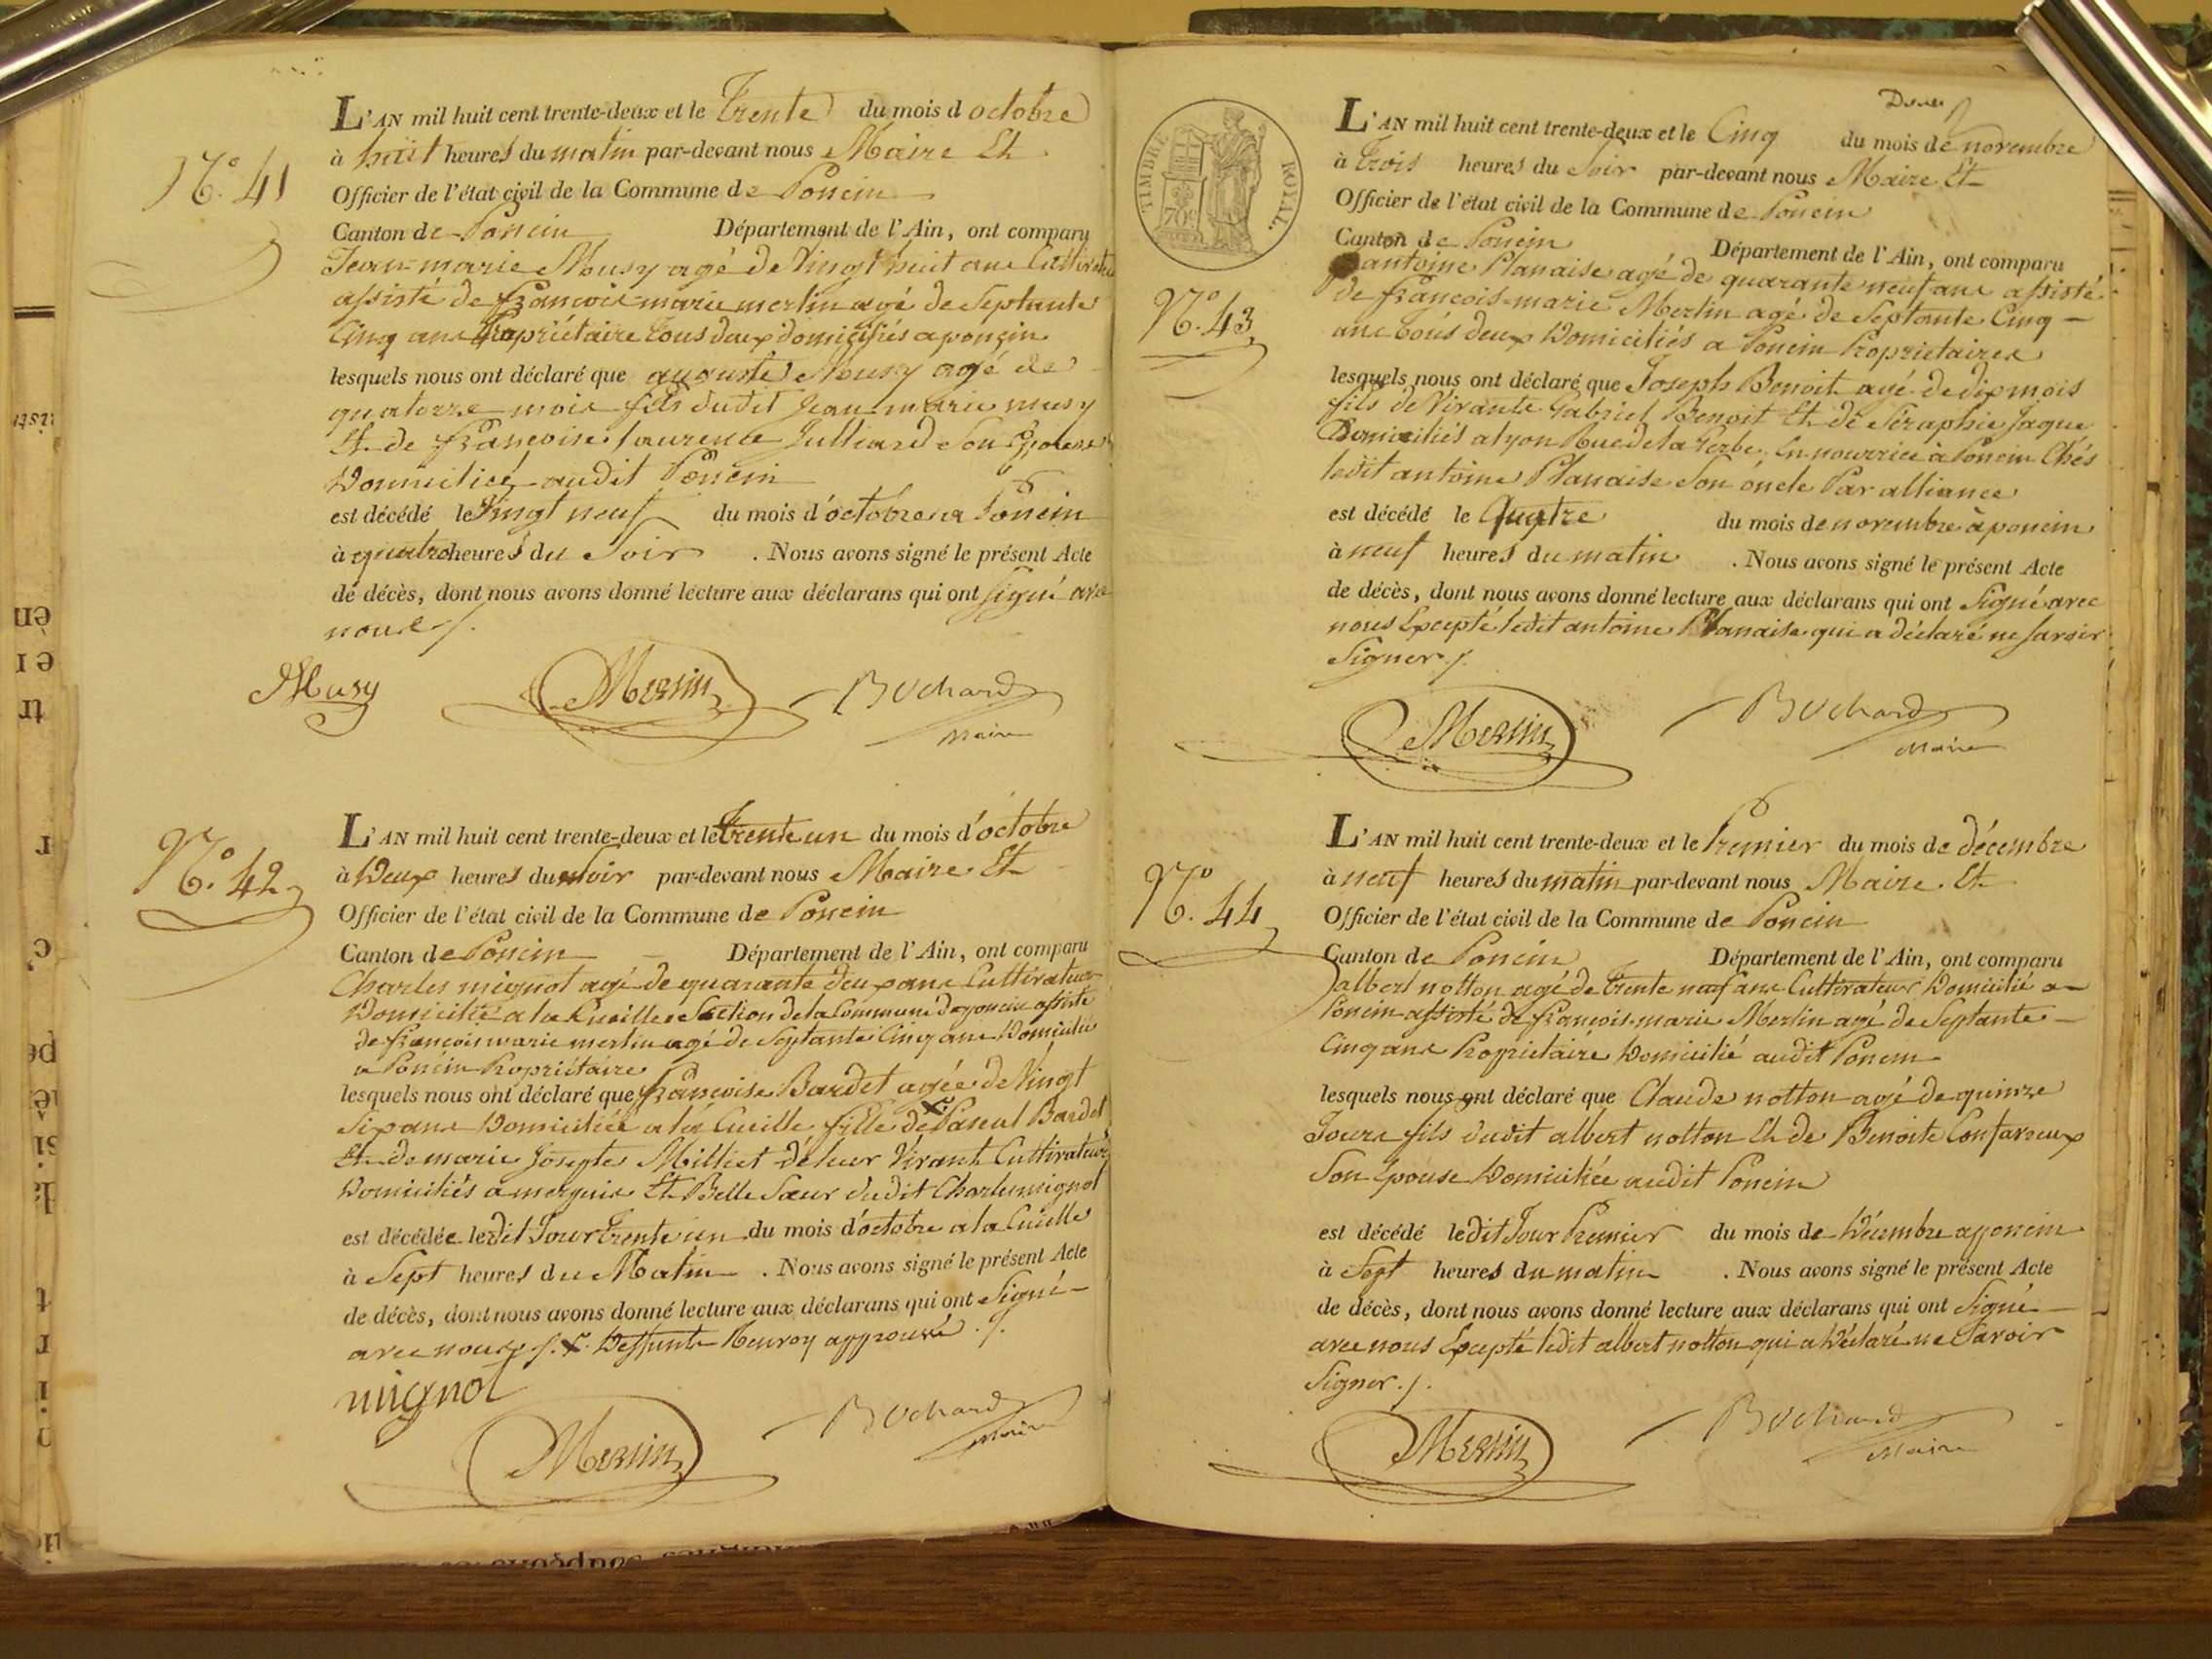 N.o 41
L'AN mil huit cent trente-deux et le Trente du mois d octobre
à huit heures du matin par-devant nous Maire Et
Officier de l'état civil de la Commune de Poncin
Canton de Poncin Département de l'Ain, ont comparu
Jean-marie Musy agé de Vingt huit ans Cultivateur
assisté de françois-marie merlin agé de Septante
Cinq ans Propriétaire tous deux domiciliés a poncin
lesquels nous ont déclaré que auguste Musy agé de
quatorze mois fils dudit Jean-marie musy
Et de françoise laurence Julliard Son Epouse
Domiciliés audit Poncin
est décédé le Vingt neuf du mois d'octobre a Poncin
à quatre heures du Soir . Nous avons signé le présent Acte
de décès, dont nous avons donné lecture aux déclarans qui ont signé avec
nous ./.
Musy Merlin Bochard
Maire
N.o 42
L'AN mil huit cent trente-deux et le trente un du mois d'octobre
à Deux heures du Soir par-devant nous Maire Et
Officier de l'état civil de la Commune de Poncin
Canton de Poncin Département de l'Ain, ont comparu
Charles mignot agé de quarante deux ans Cultivateur
Domicilié a la Cueille Section de la Commune de poncin assisté
de françois marie merlin agé de Septante Cinq ans Domicilié
a Poncin Propriétaire
lesquels nous ont déclaré que françoise Bardet agée de Vingt
Six ans Domiciliée a la Cueille fille de x Pascal Bardet
Et de marie Josepte Milliet de leur Vivant Cultivateurs
Domiciliés a merpuis Et Belle Sœur dudit Charles mignot
est décédée ledit Jour trente un du mois d'octobre a la Cueille
à Sept heures du Matin . Nous avons signé le présent Acte
de décès, dont nous avons donné lecture aux déclarans qui ont Signé
avec nous ./. x. Deffunt Renvoy approuvé ./.
mignot
Merlin Bochard
Maire
TIMBRE ROYAL.
70c
N.o 43
L'AN mil huit cent trente-deux et le Cinq du mois de novembre
à Trois heures du Soir par-devant nous Maire Et
Officier de l'état civil de la Commune de Poncin
Canton de Poncin Département de l'Ain, ont comparu
antoine Planaise agé de quarante neuf ans assisté
de françois-marie Merlin agé de Septante Cinq
ans tous deux Domiciliés a Poncin Propriétaires
lesquels nous ont déclaré que Joseph Benoit agé de dix mois
fils de Vivante Gabriel Benoit Et de Séraphie Jaque
Domiciliés a lyon Rue de la En nourrice à Poncin Chés
ledit antoine Planaise Son oncle Par alliance
est décédé le Quatre du mois de novembre à poncin
à neuf heures du matin . Nous avons signé le présent Acte
de décès, dont nous avons donné lecture aux déclarans qui ont Signé avec
nous Excepté ledit antoine Planaise qui a déclaré ne savoir
Signer ./.
Merlin Bochard
Maire
N.o 44
L'AN mil huit cent trente-deux et le Premier du mois de décembre
à neuf heures du matin par-devant nous Maire. Et
Officier de l'état civil de la Commune de Poncin
Canton de Poncin Département de l'Ain, ont comparu
albert notton agé de trente neuf ans Cultivateur Domicilié a
Poncin assisté de françois-marie Merlin agé de Septante
Cinq ans Propriétaire Domicilié audit Poncin
lesquels nous ont déclaré que Claude notton agé de quinze
Jours fils dudit albert notton Et de Benoite Confavreux
Son Epouse Domiciliée audit Poncin
est décédé ledit Jour Premier du mois de Décembre a poncin
à Sept heures du matin . Nous avons signé le présent Acte
de décès, dont nous avons donné lecture aux déclarans qui ont Signé
avec nous Excepté ledit albert notton qui a Déclaré ne Savoir
Signer ./.
Merlin Bochard
Maire